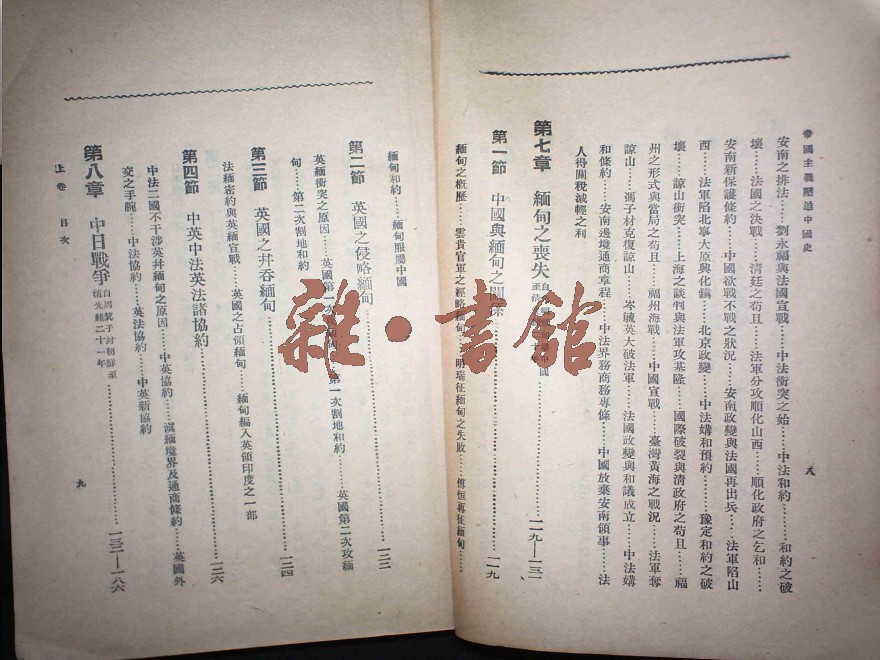 帝國主義壓迫中國史
八
安南之排法……劉永福與法國宣戰……中法衝突之始……中法和約……和約之破
壞……法國之決戰……清廷之苟且……法軍分攻順化山西……順化政府之乞和……
安南新保護條約……中國欲戰不戰之狀況……安南政變與法國再出兵……法軍陷山
西……法軍陷北寧大原興化鎬……北京政變……中法媾和預約……豫定和約之破
壞……諒山衝突……上海之談判與法軍攻基隆……國際破裂與清政府之苟且……福
州之形式與當局之苟且……福州海戰……中國宣戰……臺灣黃海之戰況……法軍奪
諒山……馮子材克復諒山……岑毓英大破法軍……法國政變與和議成立……中法媾
和條約……安南邊境通商章程……中法界務商務專條……中國放棄安南領事……法
人得關稅減輕之利
第七章 緬甸之喪失 自 至清 一一九—一三一
第一節 中國與緬甸之關係……一一九
緬甸之概歷……雲貴官軍之經略緬甸……明瑞征緬甸之失敗……傅恒再征緬甸……
緬甸和約……緬甸服屬中國
第二節 英國之侵略緬甸……一二三
英緬衝突之原因……英國第一次……第一次割地和約……英國第二次攻緬
甸……第二次割地和約
第三節 英國之幷吞緬甸……一二四
法緬密約與英緬宣戰……英國之占領緬甸……緬甸編入英領印度之一部
第四節 中英中法英法諸協約……一二六
中法二國不干涉英幷緬甸之原因……中英協約……滇緬境界及通商條約……英國外
交之手腕……中法協約……英法協約……中英新協約
第八章 中日戰爭 自周箕子封朝鮮至清光緒二十一年……一三二—一八六
上卷 目次
九
雜·書館